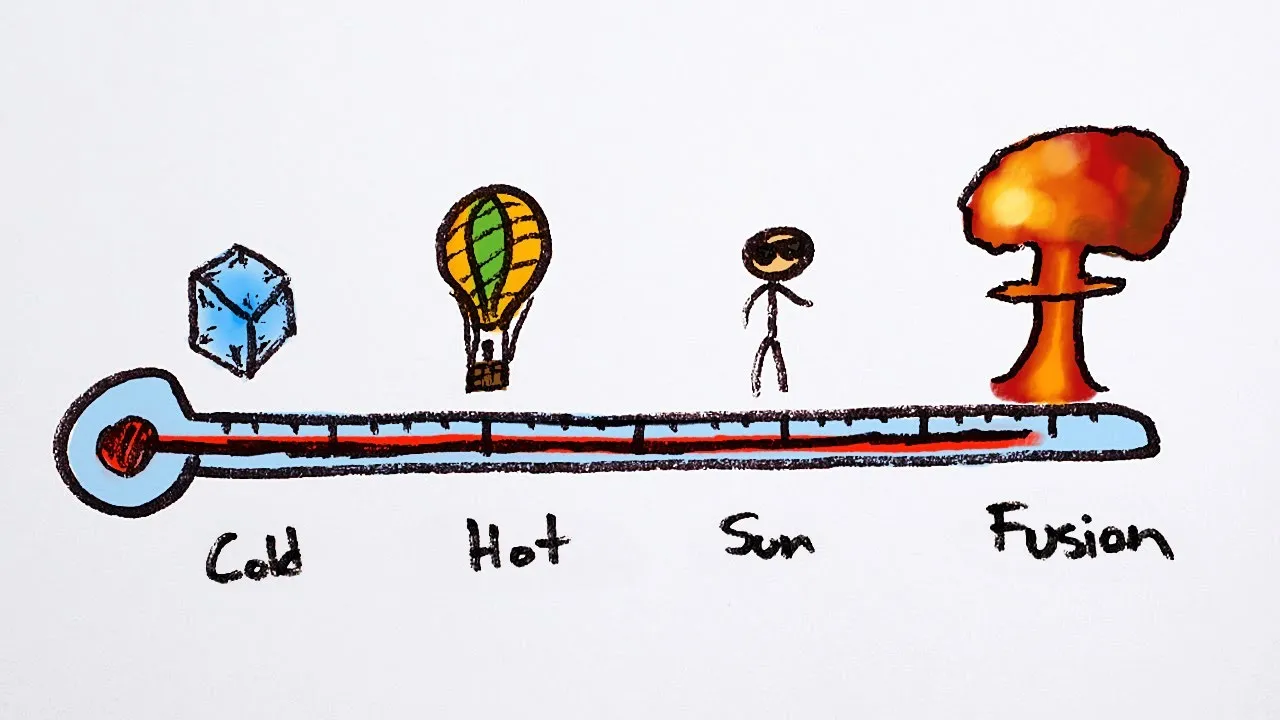 Cold
Hot
Sun
Fusion